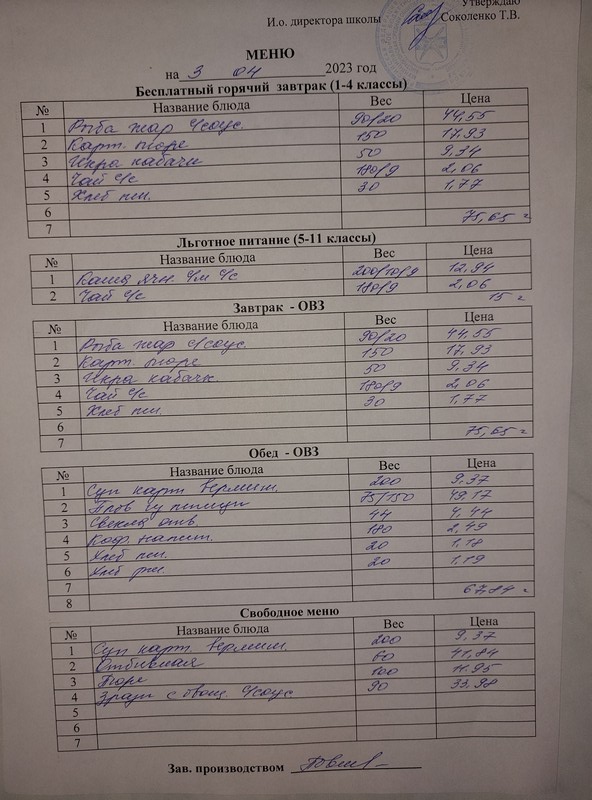 Утверждаю
И.о. директора школы Соколенко Т.В.
МЕНЮ
на 3 04 2023 год
Бесплатный горячий завтрак (1-4 классы)
№ Название блюда Вес Цена
1 Рыба жар с/соус. 90/20 44,55
2 Карт. пюре 150 17,93
3 Икра кабачк 50 9,34
4 Чай с/с 180/9 2,06
5 Хлеб пш. 30 1,77
6
7 75,65 г
Льготное питание (5-11 классы)
№ Название блюда Вес Цена
1 Каша ячн. с/м с/с 200/10/9 12,94
2 Чай с/с 180/9 2,06
15 г
Завтрак - ОВЗ
№ Название блюда Вес Цена
1 Рыба жар с/соус. 90/20 44,55
2 Карт. пюре 150 17,93
3 Икра кабачк. 50 9,34
4 Чай с/с 180/9 2,06
5 Хлеб пш. 30 1,77
6
7 75,65 г
Обед - ОВЗ
№ Название блюда Вес Цена
1 Суп карт. вермиш. 200 9,37
2 Плов с/ птицы 75/150 49,17
3 Свекла отв. 44 4,44
4 Коф. напит. 180 2,49
5 Хлеб пш. 20 1,18
6 Хлеб рж. 20 1,19
7
8 67,84 г
Свободное меню
№ Название блюда Вес Цена
1 Суп карт. вермиш. 200 9,37
2 Отбивная 60 41,84
3 Пюре 100 11,95
4 Зразы с овощ. с/соус 90 33,98
5
6
7
Зав. производством